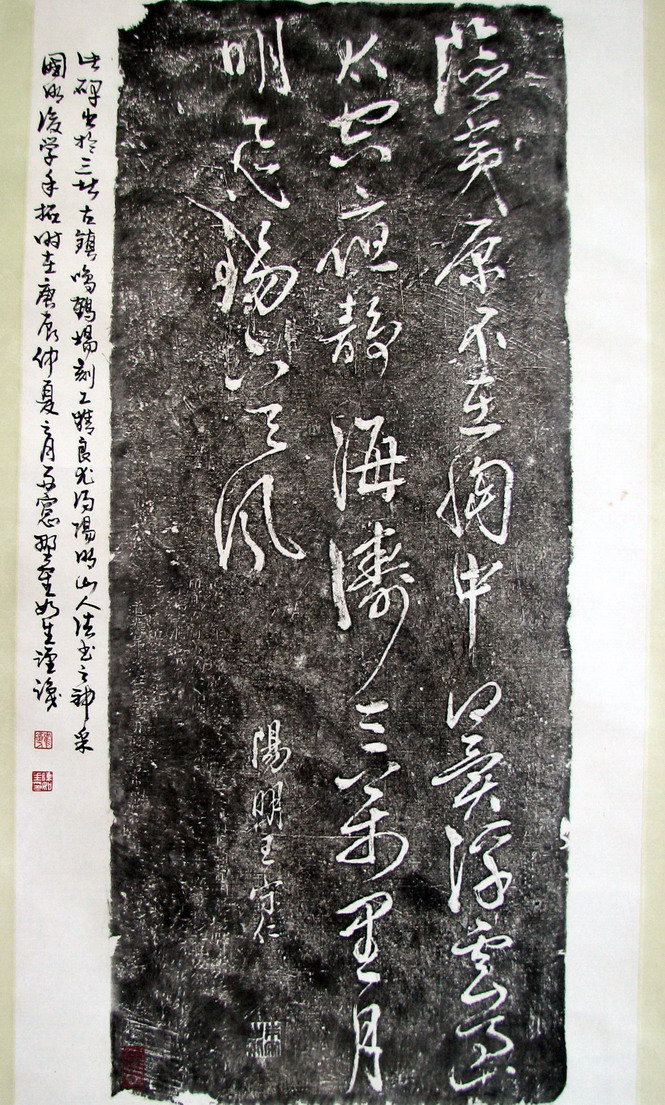 險夷原不在胸中何異浮雲過
太空夜靜海濤三萬里月
明飛錫下天風
陽明王守仁
此碑出於三北古鎮鳴鶴場刻工精良尤得陽明山人法書之神采
國明後学手拓时在庚辰仲夏之月窓如生謹識